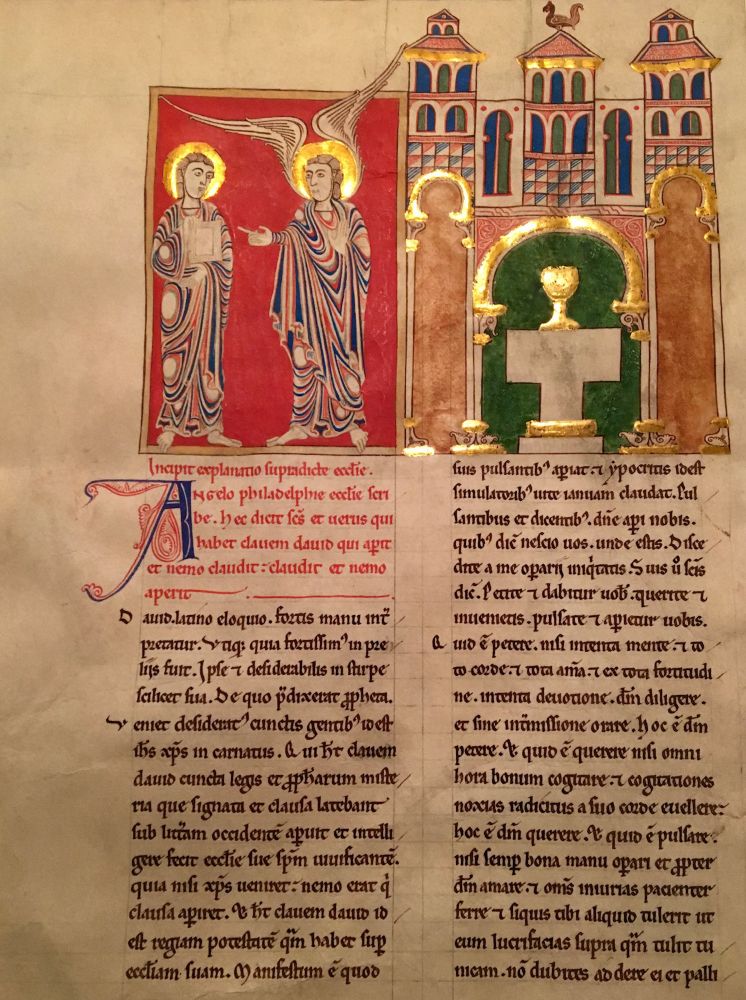 Incipit explanatio supradicte ecclie.
Angelo philadelphie ecclie scri
be. hec dicit scs et uerus qui
habet clauem dauid qui apit
et nemo claudit: claudit et nemo
aperit
Dauid. latino eloquio. fortis manu int
pretatur. Vtiq; quia fortissim' in pre
liis fuit. Ipse ⁊ desiderabilis in stirpe
scilicet sua. De quo pdixerat ppheta.
Veniet desiderat' cunctis gentib' idest
ihs xps in carnatus. Qui ht clauem
dauid cuncta legis et ppharum miste
ria que signata et clausa latebant
sub littam occidente apuit et intelli
gere fecit ecclie sue spm uiuificante.
quia nisi xps ueniret: nemo erat q
clausa apiret. Et ht clauem dauid id
est regiam potestate qm habet sup
eccliam suam. Manifestum e quod
suis pulsantib' apiat. ⁊ ypocritis idest
simulatorib' uite ianuam claudat. Pul
santibus et dicentib'. dne api nobis.
quib' dic nescio uos. unde estis. Disce
dite a me oparii iniqtatis. Suis u scis
dic. Petite ⁊ dabitur uob. querite ⁊
inuenietis. pulsate ⁊ apietur uobis.
Quid e petere. nisi intenta mente. ⁊ to
to corde. ⁊ tota ama. ⁊ ex tota fortitudi
ne. intenta deuotione. dm diligere.
et sine intmissione orare. hoc e dm
petere. Et quid e querere nisi omni
hora bonum cogitare. ⁊ cogitationes
noxias radicitus a suo corde euellere:
hoc e dm querere. Et quid e pulsare.
nisi semp bona manu opari et ppter
dm amare. ⁊ oms iniurias pacienter
ferre ⁊ siquis tibi aliquid tulerit ut
eum lucrifacias supra qm tulit tu
nicam. no dubites ad dere ei et palli